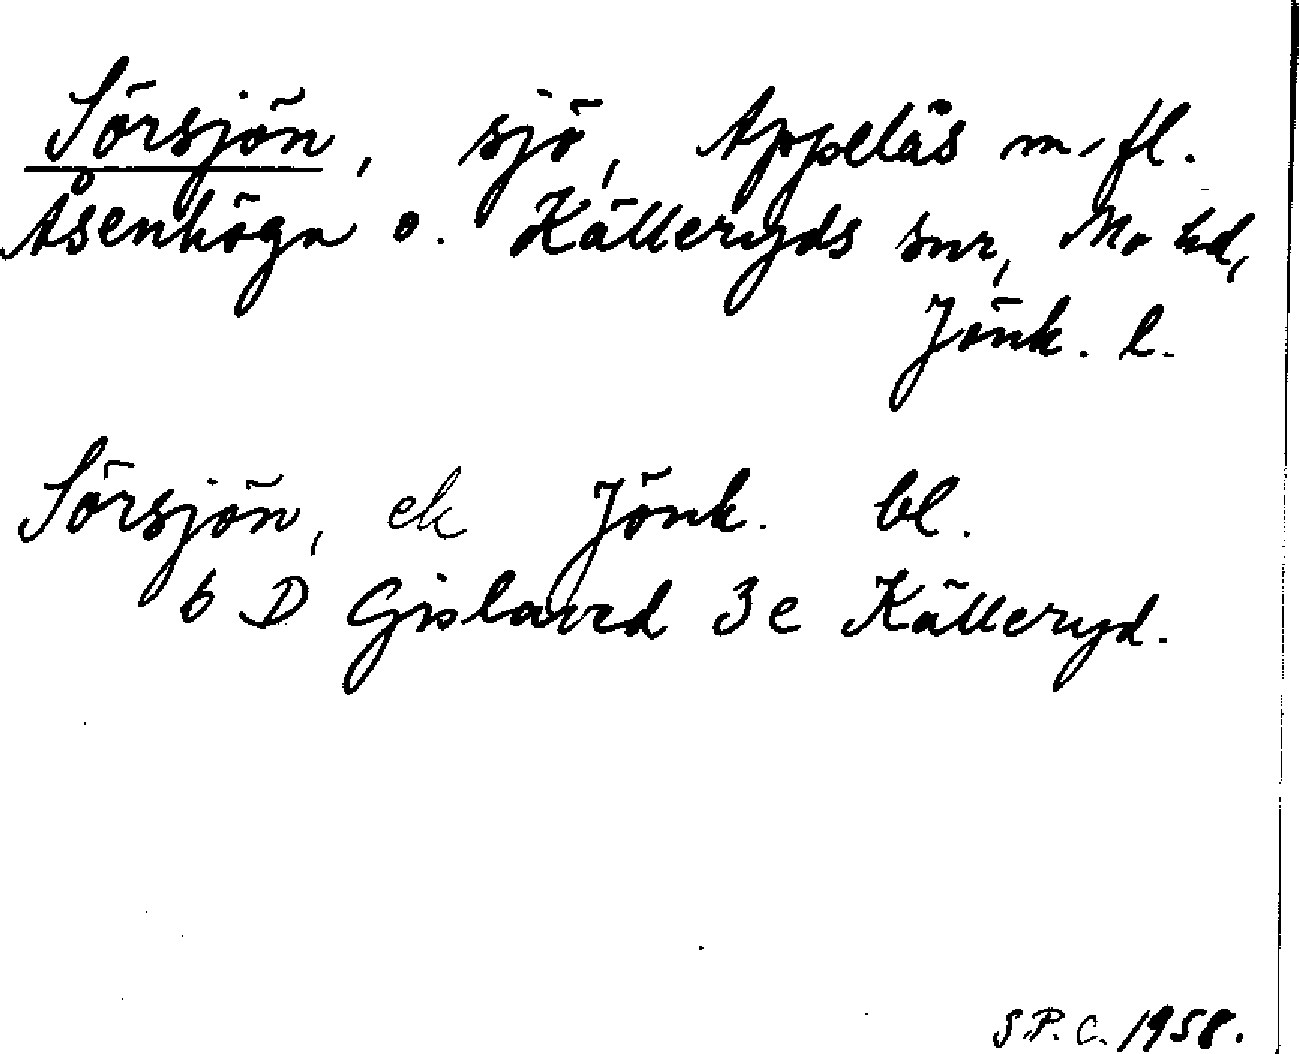 Sörsjön, sjö, Appelås m. fl.
Åsenhöga o. Källeryds snr, Mo hd,
Jönk. l.
Sörsjön, ek Jönk. bl.
6 D Gislaved 3 e Källeryd.
S.P.C. 1958.